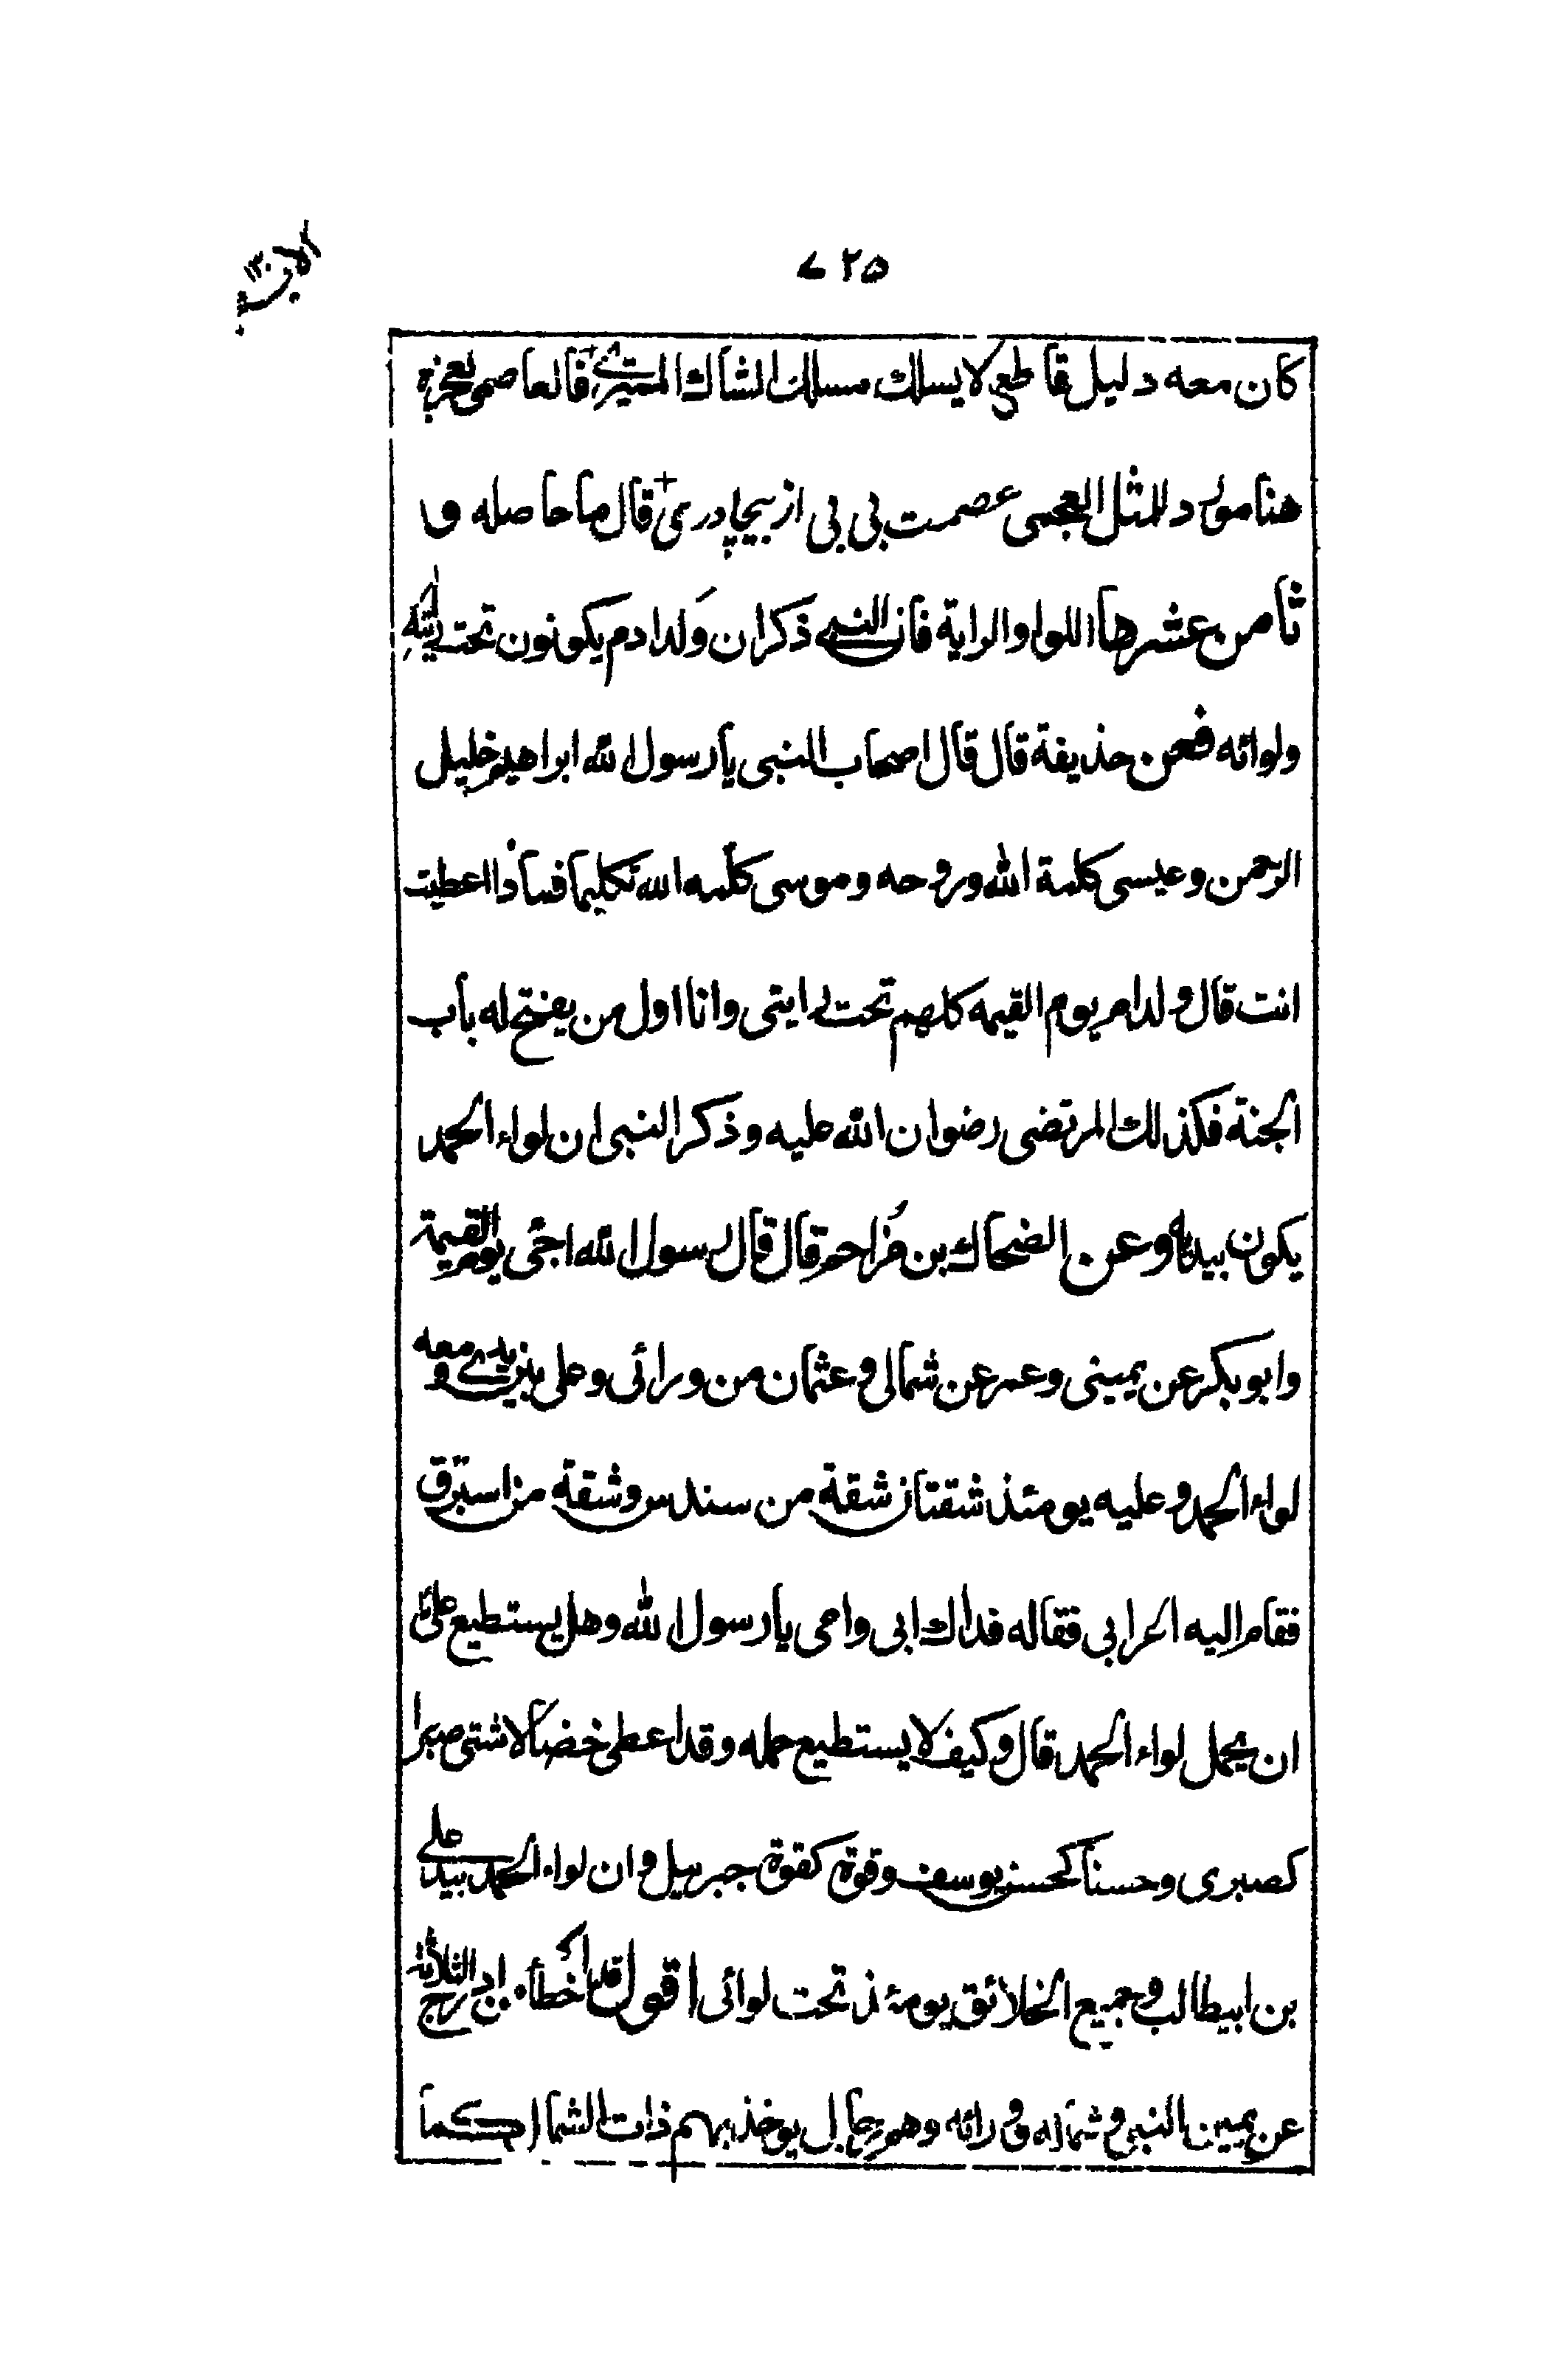 ٧٢٥
كان معه دليل قاطع لا يسلك مسلك الشاك الممترى فالعاصمى بعجزة
هنا مورد للمثل العجمى عصمت بى بى از بيچادرى قال ما حاصله و
ثامن عشرها اللوا والراية فان النبى ذكر ان ولد ادم يكونون تحت رايته
ولوائه فعن حذيفة قال قال اصحاب النبى يا رسول الله ابراهيم خليل
الرحمن وعيسى كلمة الله وروحه وموسى كلمه الله تكليما فماذا اعطيت
انت قال ولد ادم يوم القيمه كلهم تحت رايتى وانا اول من يفتح له باب
الجنة فكذلك المرتضى رضوان الله عليه وذكر النبى ان لواء الحمد
يكون بيده وعن الضحاك بن مزاحم قال قال رسول الله اجئ يوم القيمة
وابو بكر عن يمينى وعمر عن شمالى وعثمان من ورائى وعلى بين يدى ومعه
لواء الحمد وعليه يومئذ شقتان شقة من سندس وشقة من استبرق
فقام اليه اعرابى فقاله فداك ابى وامى يا رسول الله وهل يستطيع على
ان يحمل لواء الحمد قال وكيف لا يستطيع حمله وقد اعطى خصالا شتى صبرا
كصبرى وحسنا كحسن يوسف وقوة كقوة جبرييل وان لواء الحمد بيد على
بن ابيطالب وجميع الخلائق يومئذ تحت لوائى اقول قد اخطأ من ابرج الثلاثة
عن يمين النبى وشماله وورائه وهم رجال يوخذ بهم ذات الشمال كما